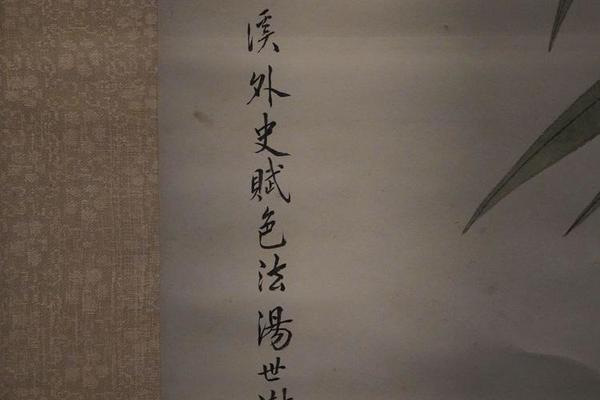 溪外史賦色法湯世